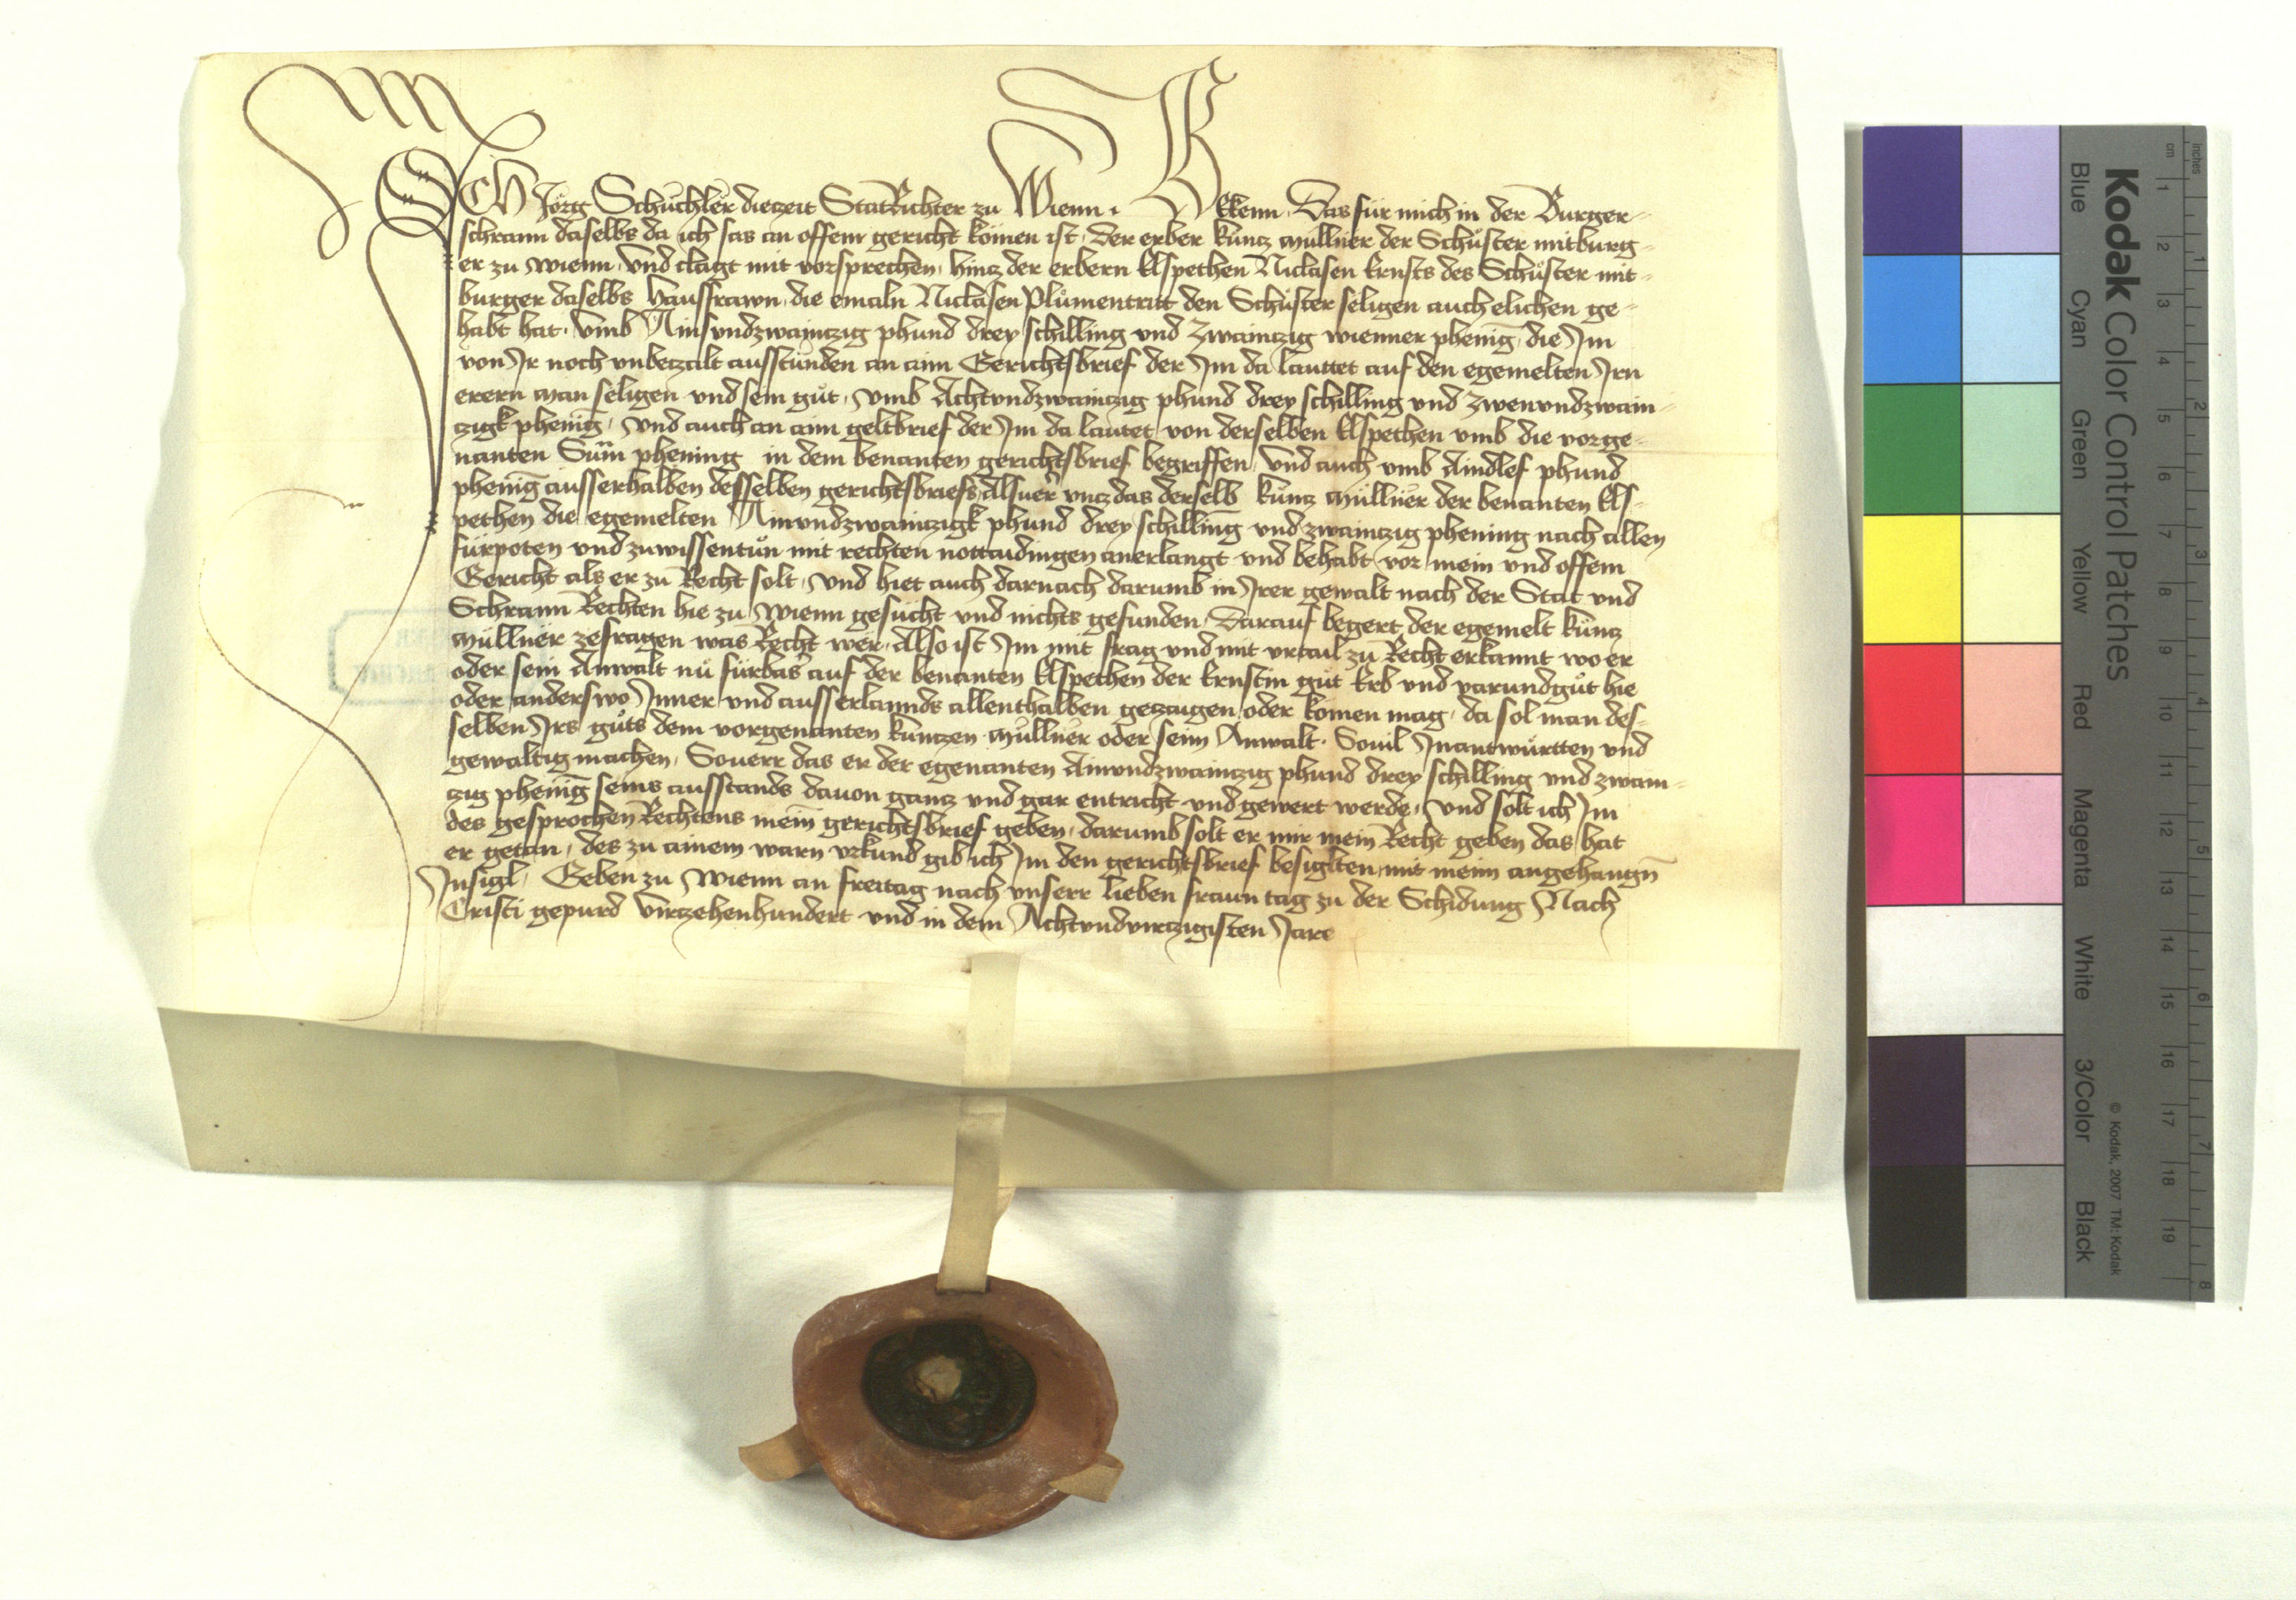 ICH Jörg Schuchler diezeit StatRichter zu Wienn. Bekenn. Das für mich in der Burger-
schrann daselbs da ich sas an offem gericht komen ist, der erber kuncz Müllner der Schůster mitburg-
er zu Wienn, und clagt mit vorsprechen, hincz der erbern Elspethen Niclasen Ernsts des Schůster mit-
burger daselbs hausfrawn, die emaln Niclasen Plůmentritt den Schůster seligen auch elichen ge-
habt hat. Umb Ainsundzwainczig phund drey schilling und Zwainczig wienner phenīg, die Im
von Ir noch unbeczalt ausstunden an aim Gerichtsbrief der Im da lauttet auf den egemelten Irn
erern man seligen und sein gůt, umb Achtundzwainczig phund drey schilling und Zwenundzwain-
czigk phenīg, und auch an aim geltbrief der Im da lautet von derselben Elspethen umb die vorge-
nanten Sūm phening in dem benanten gerichtsbrief begriffen, Und auch umb Aindlef phund
phenīg ausserhalben desselben gerichtsbriefs, Alsuer uncz das derselb kuncz Müllner der benanten Els-
pethen die egemelten Ainundzwainczigk phund drey schilling und zwainczig phening nach allen
fürpoten und zuwissentůn mit rechten nottaidingen anerlangt und behabt vor mein und offem
Gericht als er zu Recht solt, Und hiet auch darnach darumb in Irer gewalt nach der Stat und
Schrann Rechten hie zu Wienn gesucht und nichts gefunden, Darauf begert der egemelt kuncz
Müllner zefragen was Recht wer, Also ist Im mit frag und mit urtail zu Recht erkannt wo er
oder sein Anwalt nu fürbas auf der benanten Elspethen der Ernstin gůt Erb und varundgůt hie
oder anderswo Inner und ausserlannds allenthalben geczaigen oder komen mag, da sol man des-
selben Irs gůts dem vorgenanten kunczen Müllner oder seim Anwalt. Souil Inantwürtten und
gewaltig machen, Souerr das er der egenanten Ainundzwainczig phund drey schilling und zwain-
czig phenīg seins ausstands dauon gancz und gar entricht und gewert werde, Und solt ich Im
des gesprochen Rechtens mein gerichtsbrief geben, darumb solt er mir mein Recht geben das hat
er getan, des zu ainem warn urkund gib ich Im den gerichtsbrief besiglten mit meim angehangn̄
Insigl, Geben zu Wienn an freitag nach unserr lieben fraun tag zu der Schidung Nach
Cristi gepurd Virczehenhundert und in dem Achtundvirczigisten Jare
Kodak Color Control Patches
Blue Cyan Green Yellow Red Magenta White 3/Color Black
© Kodak, 2007 TM: Kodak
inches 1 2 3 4 5 6 7 8
cm 1 2 3 4 5 6 7 8 9 10 11 12 13 14 15 16 17 18 19